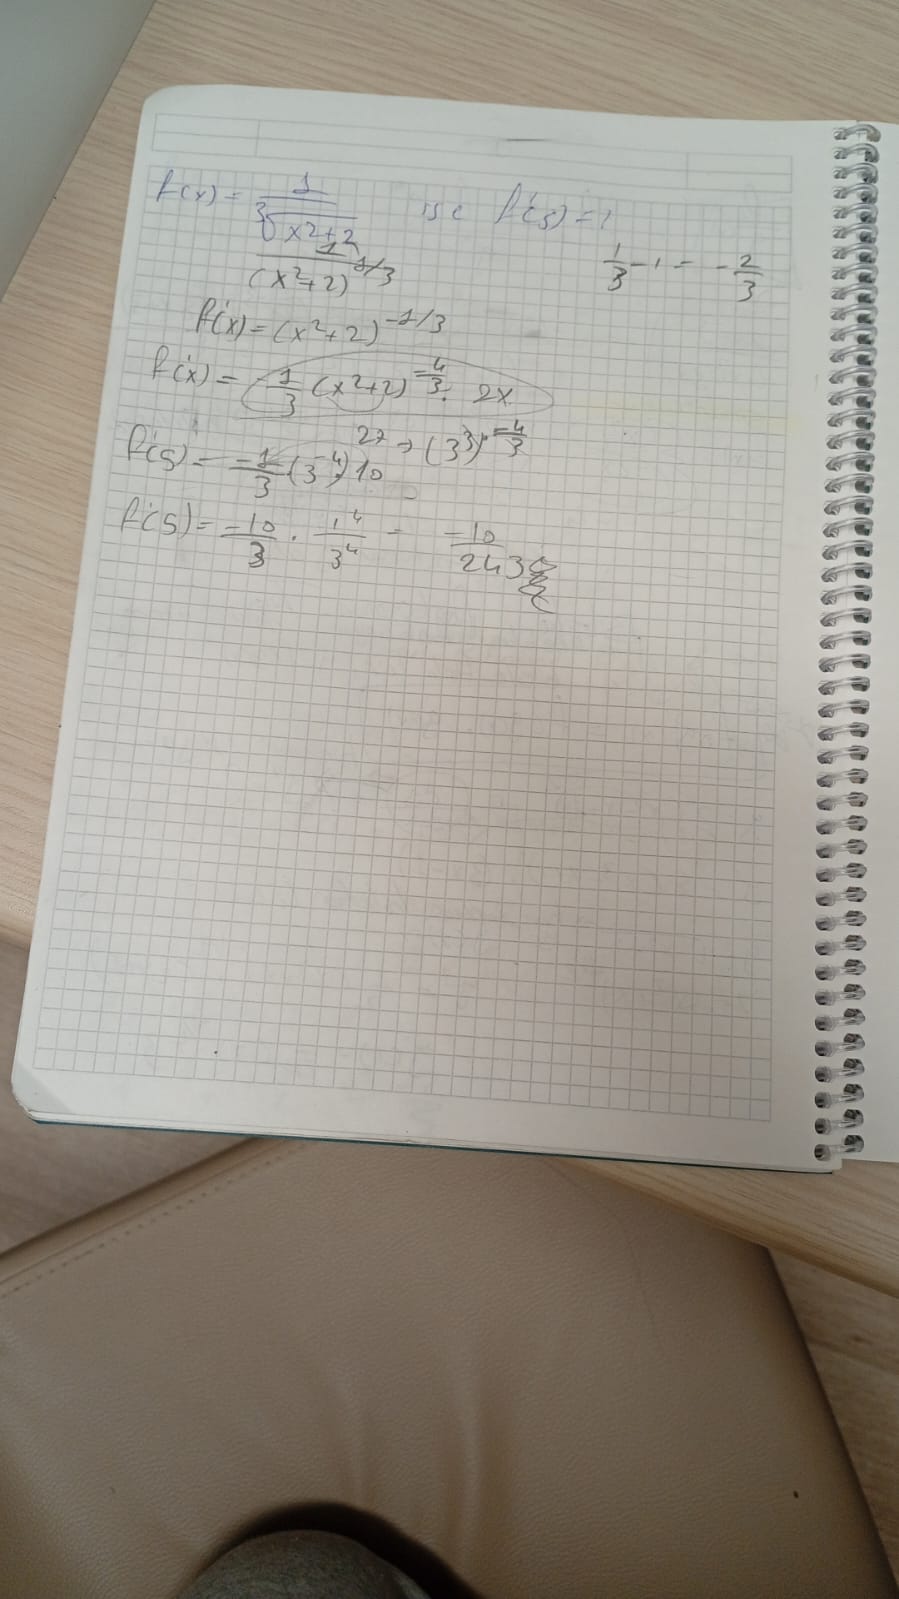 f(x) = 1/∛(x²+2) ise f'(5) = ?
1/(x²+2)^1/3
1/3 - 1 = -2/3
f'(x) = (x²+2)^-1/3
f'(x) = -1/3 (x²+2)^-4/3 · 2x
27 → (3³)^-4/3
f'(5) = -1/3 (3^-4) · 10
f'(5) = -10/3 · 1⁴/3⁴ = -10/243